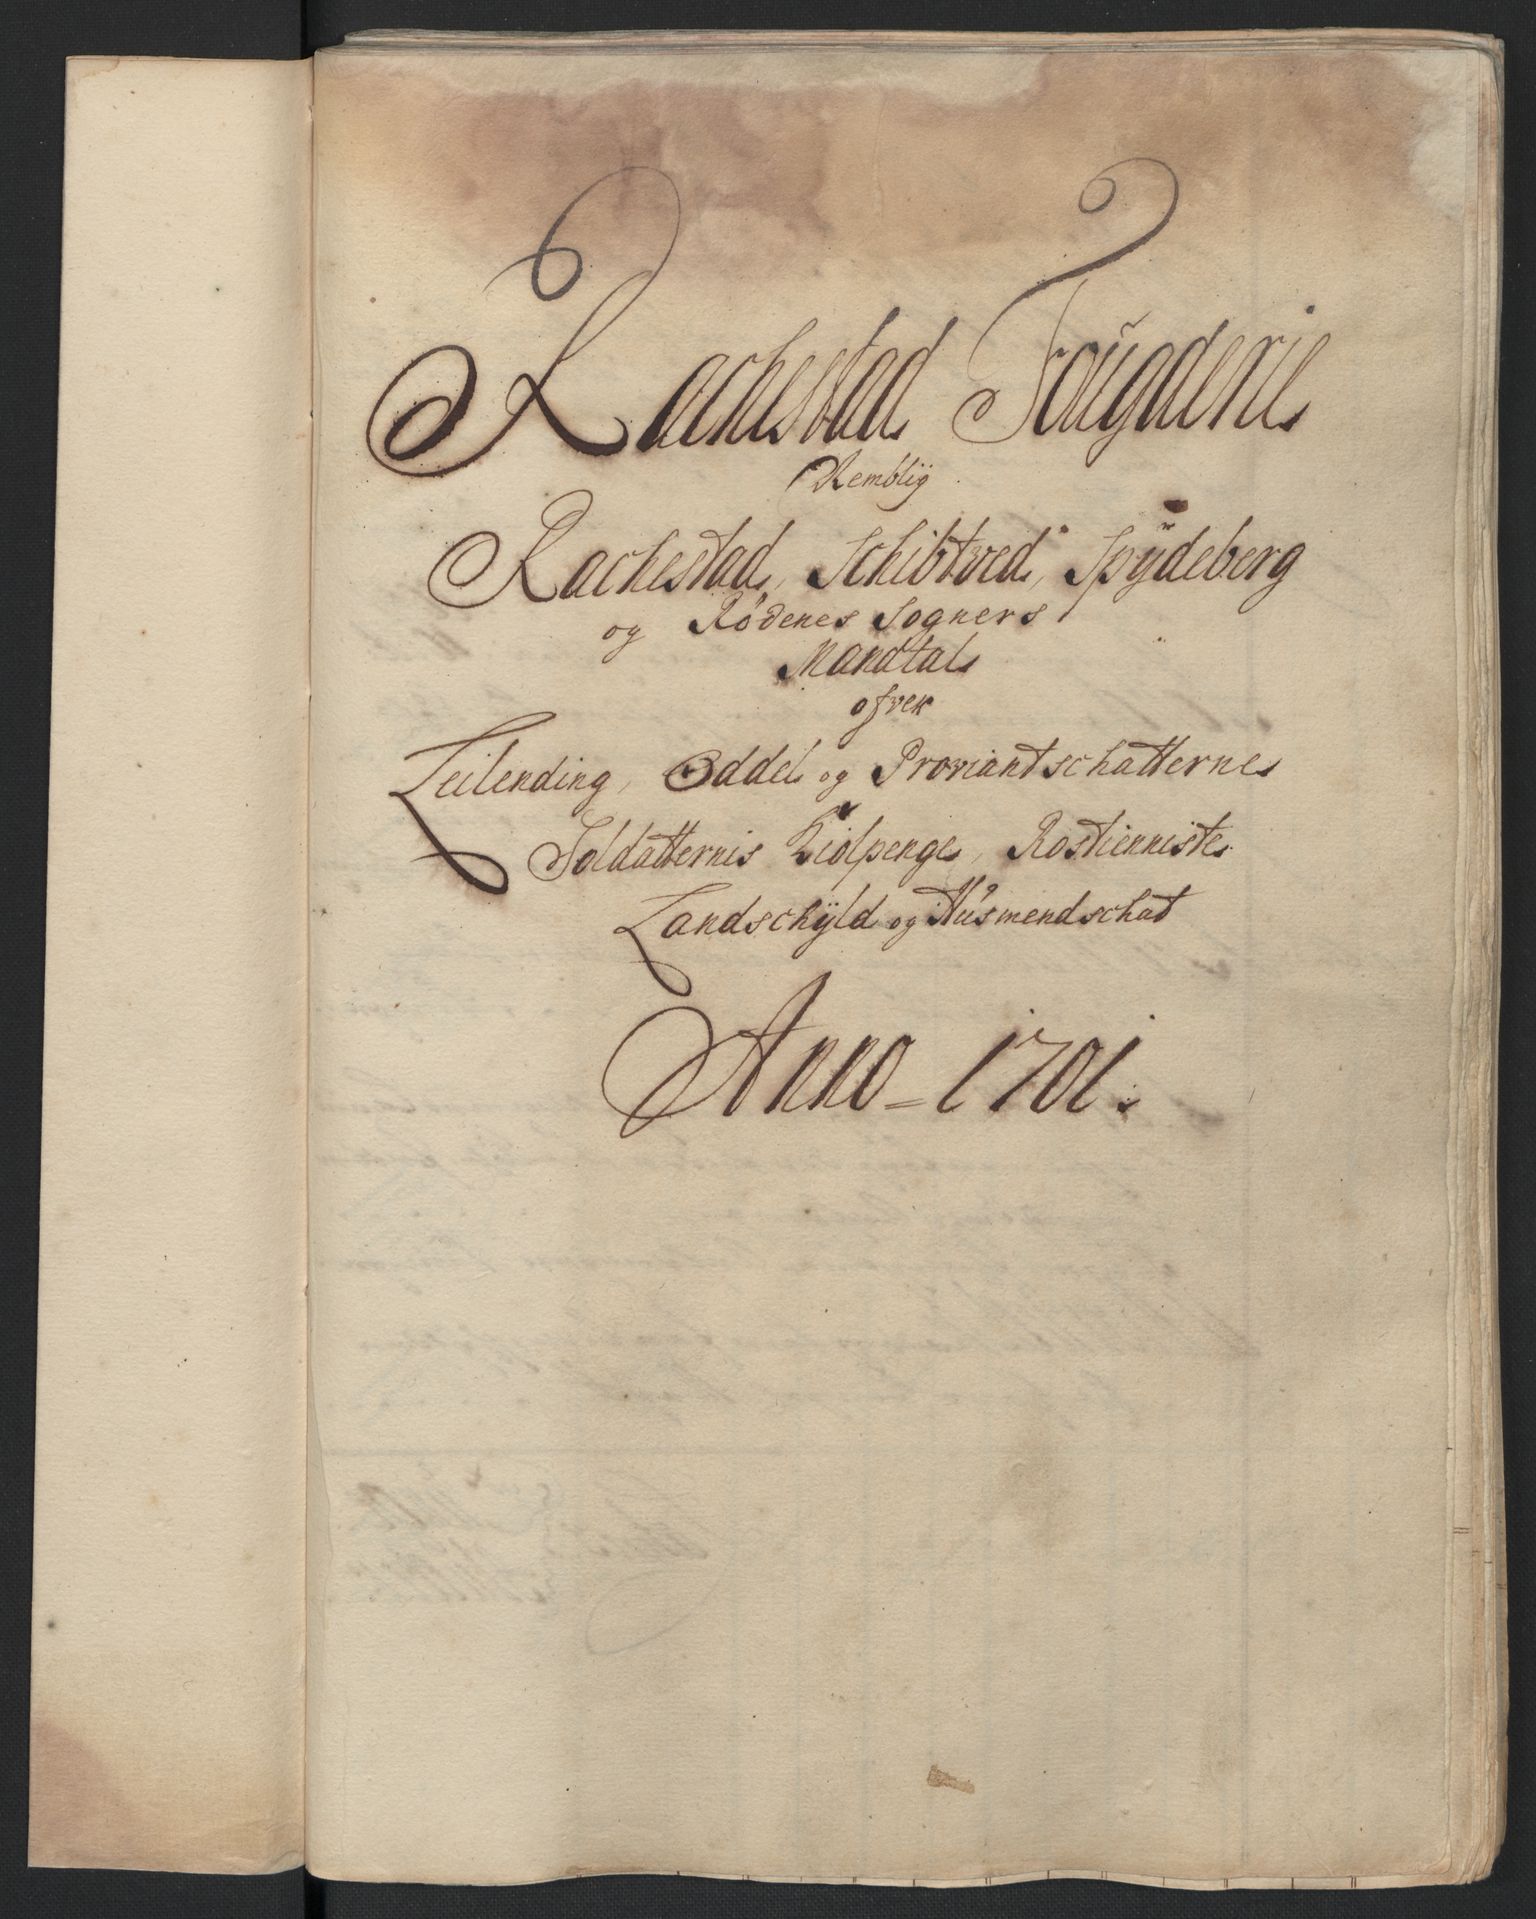 Rachestad Fougderie
Nemblig
Rachestad, Schibtved, Spÿdeberg
og Rødenes Sogners
Mandtal
ofver
Leilending, Oddel og Proviantschatternes
Soldatternis Kiolpenge, Rostienniste
Landschÿld og Husmendschat
Anno - 1701.